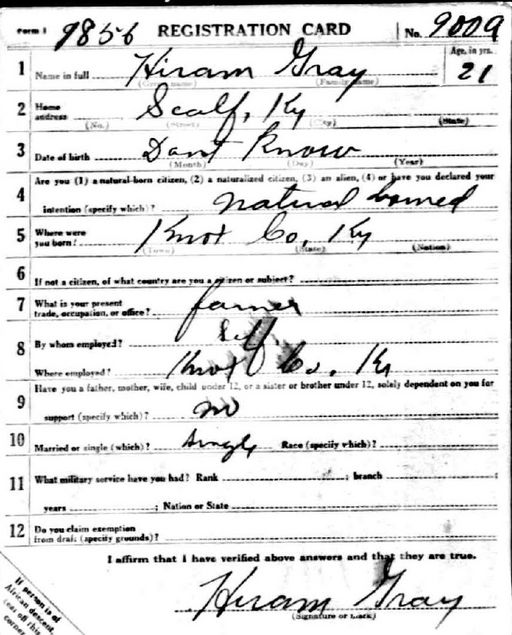 Form 1 9856 REGISTRATION CARD No. 9009
1 Name in full Hiram Gray Age, in yrs. 21
(Given name) (Family name)
2 Home address Scalf, Ky
(No.) (Street) (City) (State)
3 Date of birth Dont Know
(Month) (Day) (Year)
4 Are you (1) a natural-born citizen, (2) a naturalized citizen, (3) an alien, (4) or have you declared your
intention (specify which)? natural borned
5 Where were you born? Knox Co, Ky
(Town) (State) (Nation)
6 If not a citizen, of what country are you a citizen or subject?
7 What is your present trade, occupation, or office? farmer
8 By whom employed? Self
Where employed? Knox Co. Ky
9 Have you a father, mother, wife, child under 12, or a sister or brother under 12, solely dependent on you for
support (specify which)? no
10 Married or single (which)? single Race (specify which)?
11 What military service have you had? Rank ; branch ;
years ; Nation or State
12 Do you claim exemption from draft (specify grounds)?
I affirm that I have verified above answers and that they are true.
Hiram Gray
(Signature or mark)
If person is of
African descent,
tear off this
corner